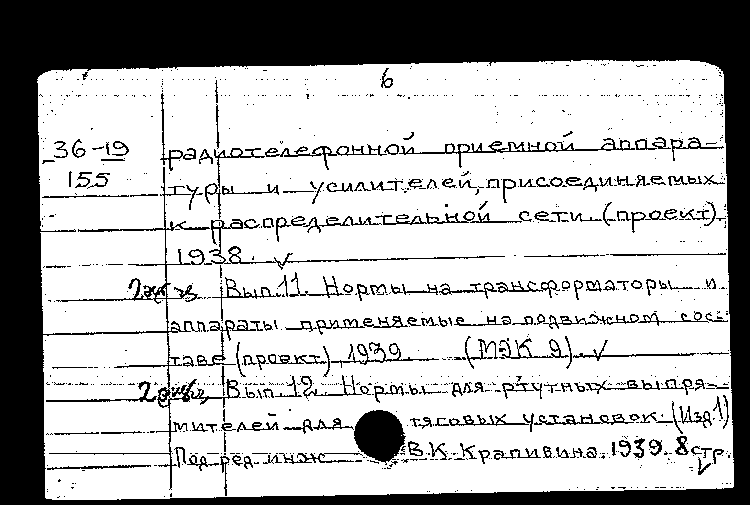 6
36-19 радиотелефонной приемной аппара-
155 туры и усилителей, присоединяемых
к распределительной сети. (проект)
1938. ✓
2 экз Вып. 11. Нормы на трансформаторы и
аппараты применяемые на подвижном сос-
таве (проект), 1939. (МЭК 9). ✓
Вып. 12. Нормы для ртутных выпря-
мителей для тяговых установок. (Изд. 1)
Под ред. инж В.К. Крапивина. 1939. 8 стр.